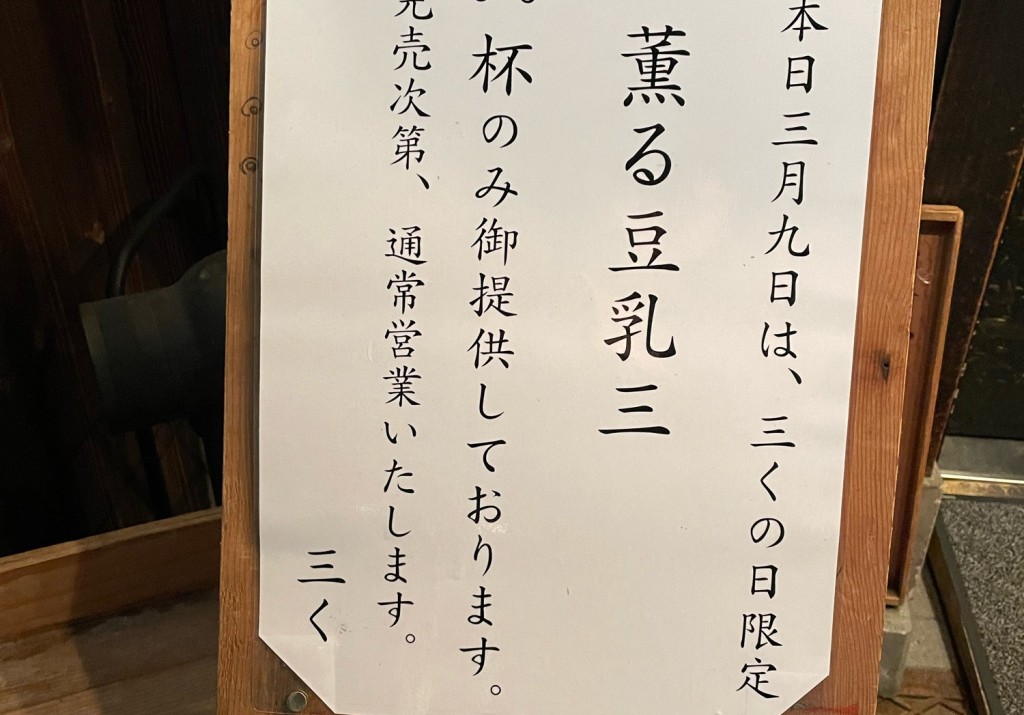 本日三月九日は、三くの日限定
薫る豆乳三
杯のみ御提供しております。
売次第、通常営業いたします。
三く